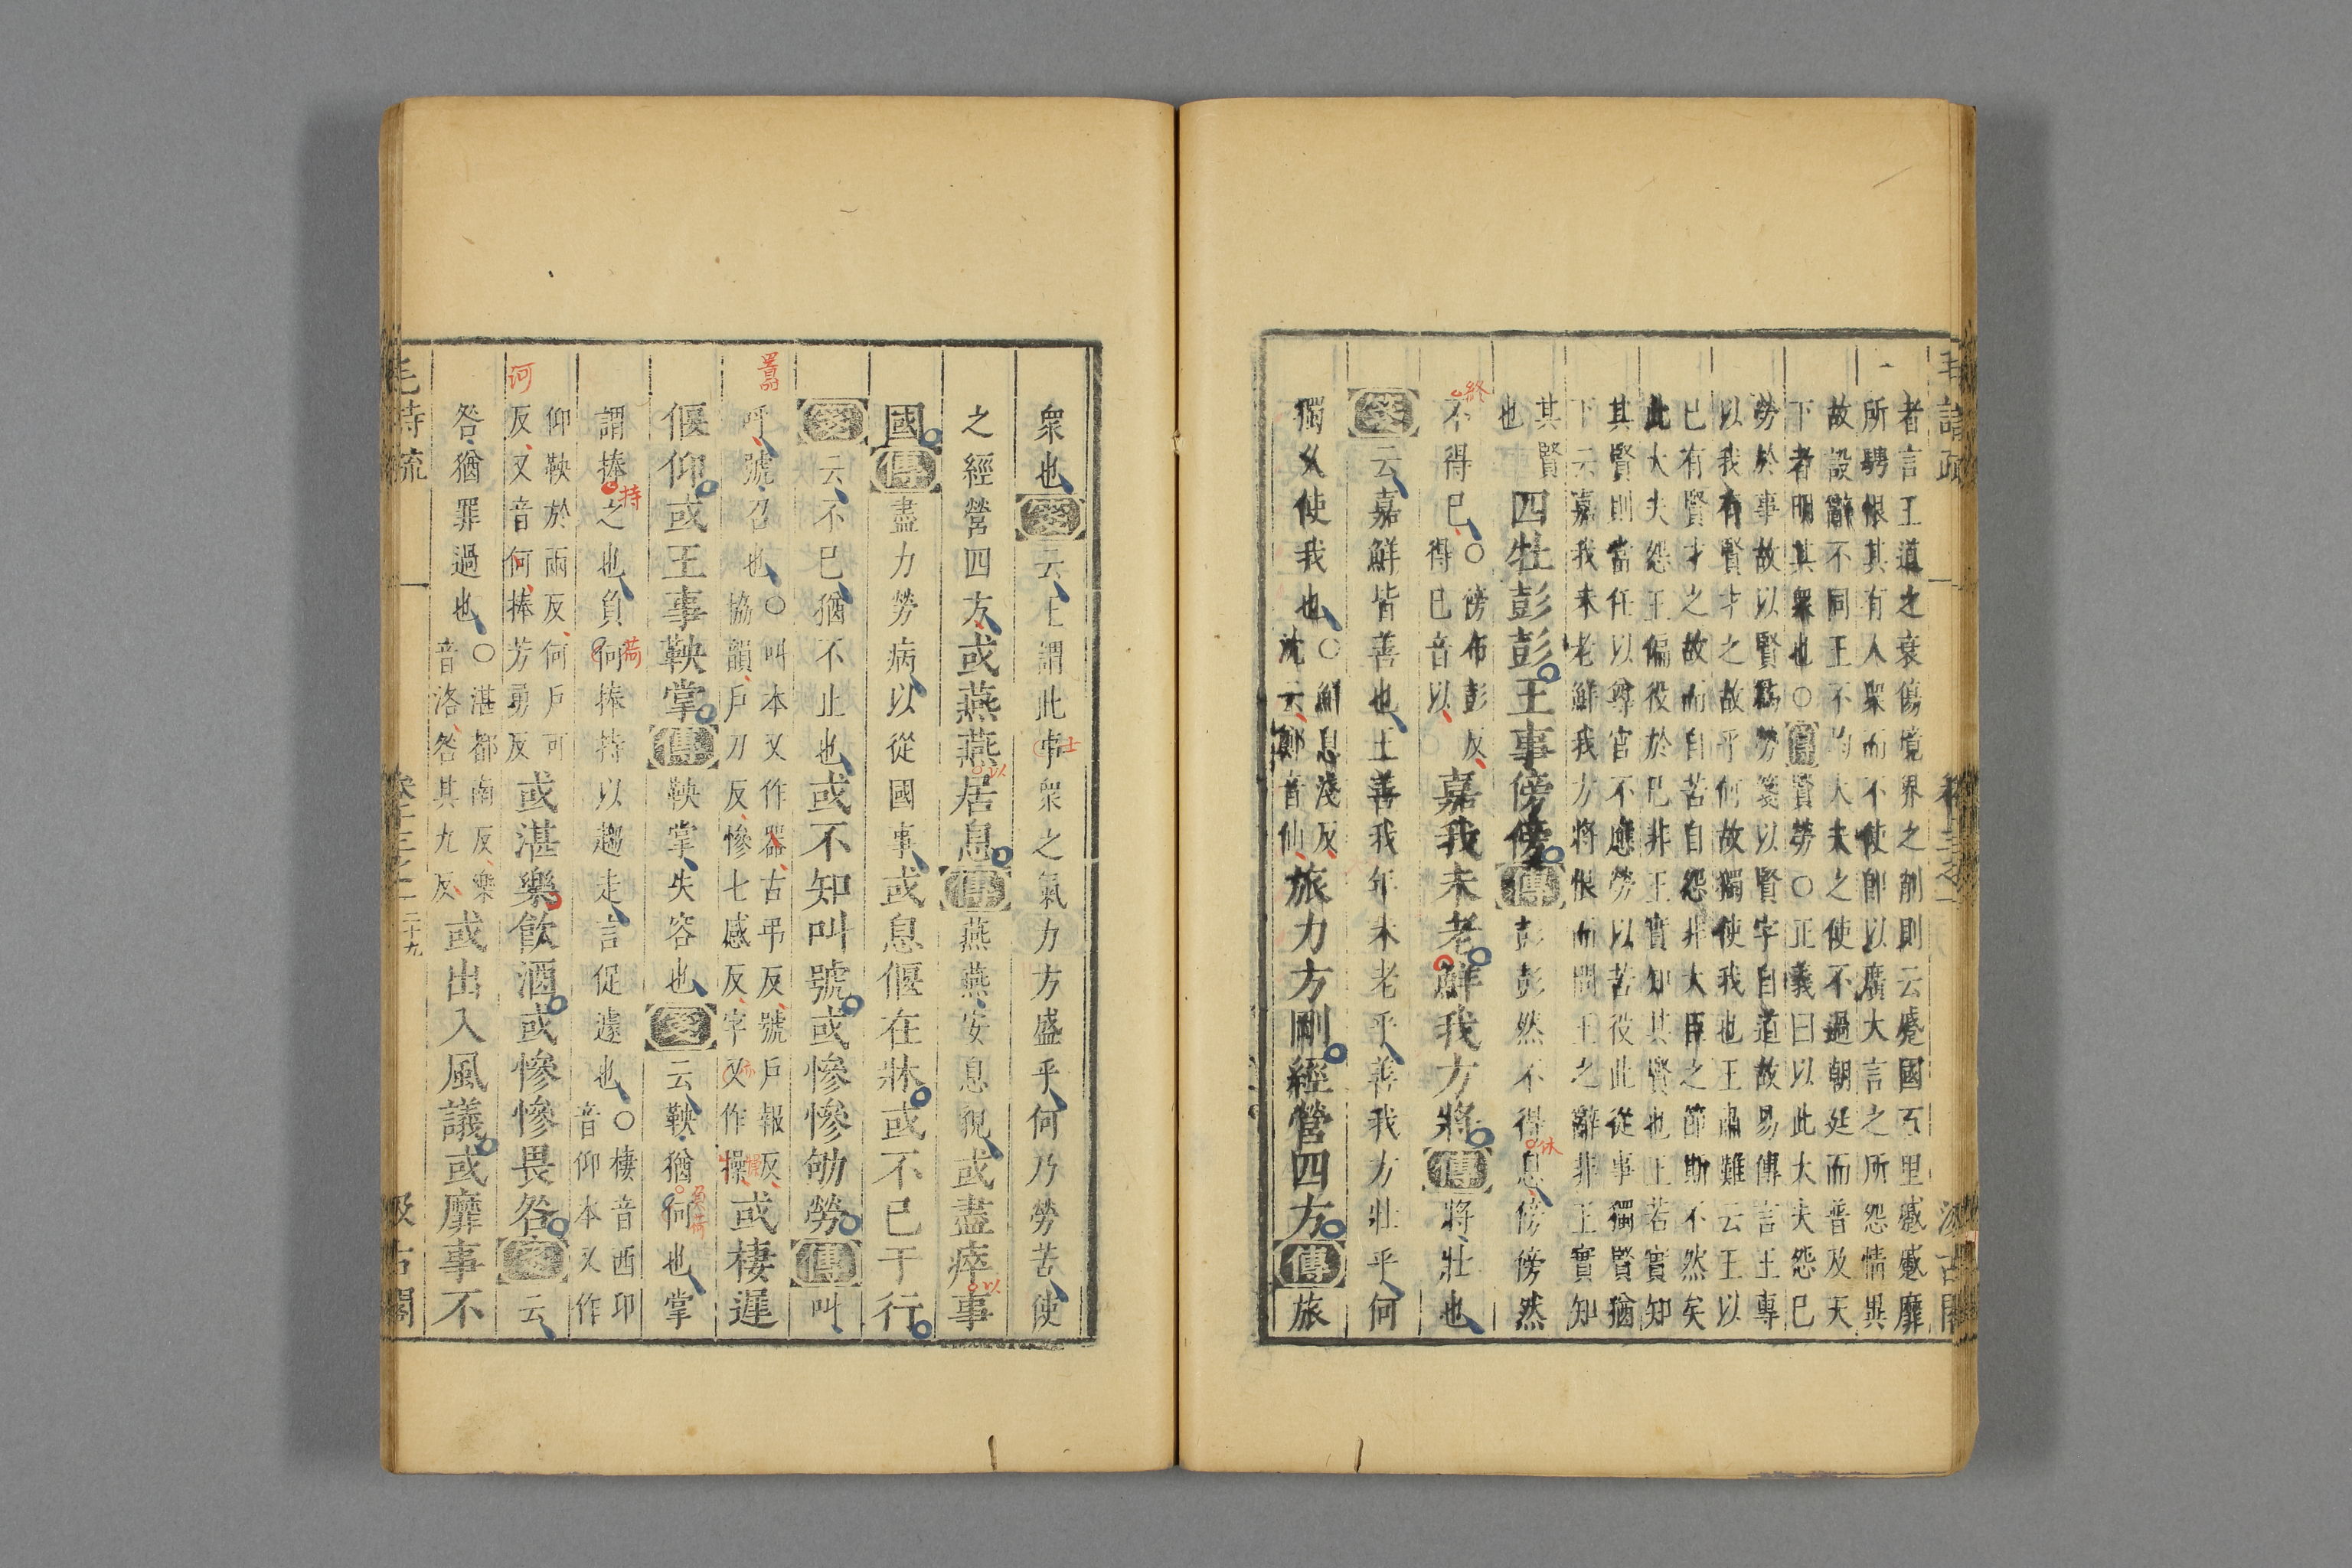 毛詩疏
者言王道之衰傷境界之削則云蹙國百里慼慼靡
所騁恨其有人衆而不使卽以廣大言之所怨情異
故設辭不同王不均大夫之使不過朝廷而普及天
下者明其衆也○傳賢勞○正義曰以此大夫怨已
勞於事故以賢爲勞箋以賢字自道故易傳言王專
以我有賢才之故乎何故獨使我也王肅難云王以
已有賢才之故而自苦自怨非大臣之節斯不然矣
此大夫怨王偏役於已非王實知其賢也王若實知
其賢則當任以尊官不應勞以苦役此從事獨賢猶
下云嘉我未老鮮我方將恨而問王之辭非王實知
其賢也四牡彭彭王事傍傍傳彭彭然不得息傍傍然
休
不得已○傍布彭反得已音以嘉我未老鮮我方將傳將壯也
終
箋云嘉鮮皆善也王善我年未老乎善我方壯乎何
獨久使我也○鮮息淺反沈云鄭音仙旅力方剛經營四方傳旅
衆也箋云王謂此事衆之氣力方盛乎何乃勞苦使
士
之經營四方或燕燕居息傳燕燕安息貌或盡瘁事
以
以
國傳盡力勞病以從國事或息偃在牀或不已于行
箋云不已猶不止也或不知叫號或慘慘劬勞傳叫
呼號召也○叫本又作嚻古弔反號戶報反協韻戶刀反慘七感反字又作懆或棲遲
嚻
亦
偃仰或王事鞅掌傳鞅掌失容也箋云鞅猶何也掌
負荷
謂捧之也負何捧持以趨走言促遽也○棲音西卬音仰本又作
持
荷
仰鞅於兩反何戶可反又音何捧芳勇反或湛樂飮酒或慘慘畏咎箋云
河
咎猶罪過也○湛都南反樂音洛咎其九反或出入風議或靡事不
毛詩疏 卷十三之一 二十九 汲古閣